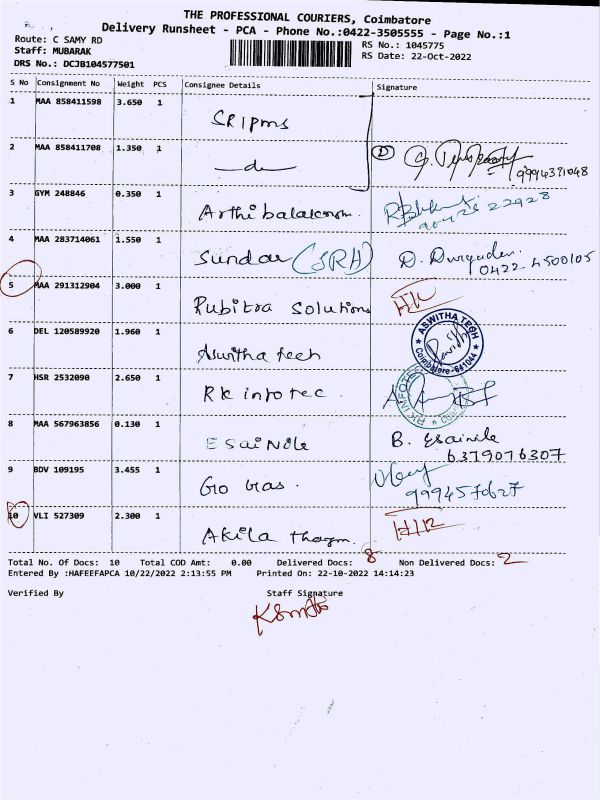 THE PROFESSIONAL COURIERS, Coimbatore
Delivery Runsheet - PCA - Phone No.:0422-3505555 - Page No.:1
Route: C SAMY RD
Staff: MUBARAK
DRS No.: DCJB104577501
RS No.: 1045775
RS Date: 22-Oct-2022
S No Consignment No Weight PCS Consignee Details Signature
1 MAA 858411598 3.650 1 SRIpms
2 MAA 858411708 1.350 1 9994381048
3 GYM 248846 0.350 1
4 MAA 283714061 1.550 1 Sundar (SRH) 0422-4500105
5 MAA 291312904 3.000 1 Rubitra Solutions
6 DEL 120589920 1.960 1 Aswitha tech ASWITHA TECH Coimbatore-641044
7 HSR 2532090 2.650 1 RK infotec RK INFOTEC
8 MAA 567963856 0.130 1 ESaiNile B. Esainile
6379076307
9 BDV 109195 3.455 1 Go Gas.
9994570627
10 VLI 527309 2.300 1 Akila
Total No. Of Docs: 10 Total COD Amt: 0.00 Delivered Docs: 8 Non Delivered Docs: 2
Entered By :HAFEEFAPCA 10/22/2022 2:13:55 PM Printed On: 22-10-2022 14:14:23
Verified By Staff Signature